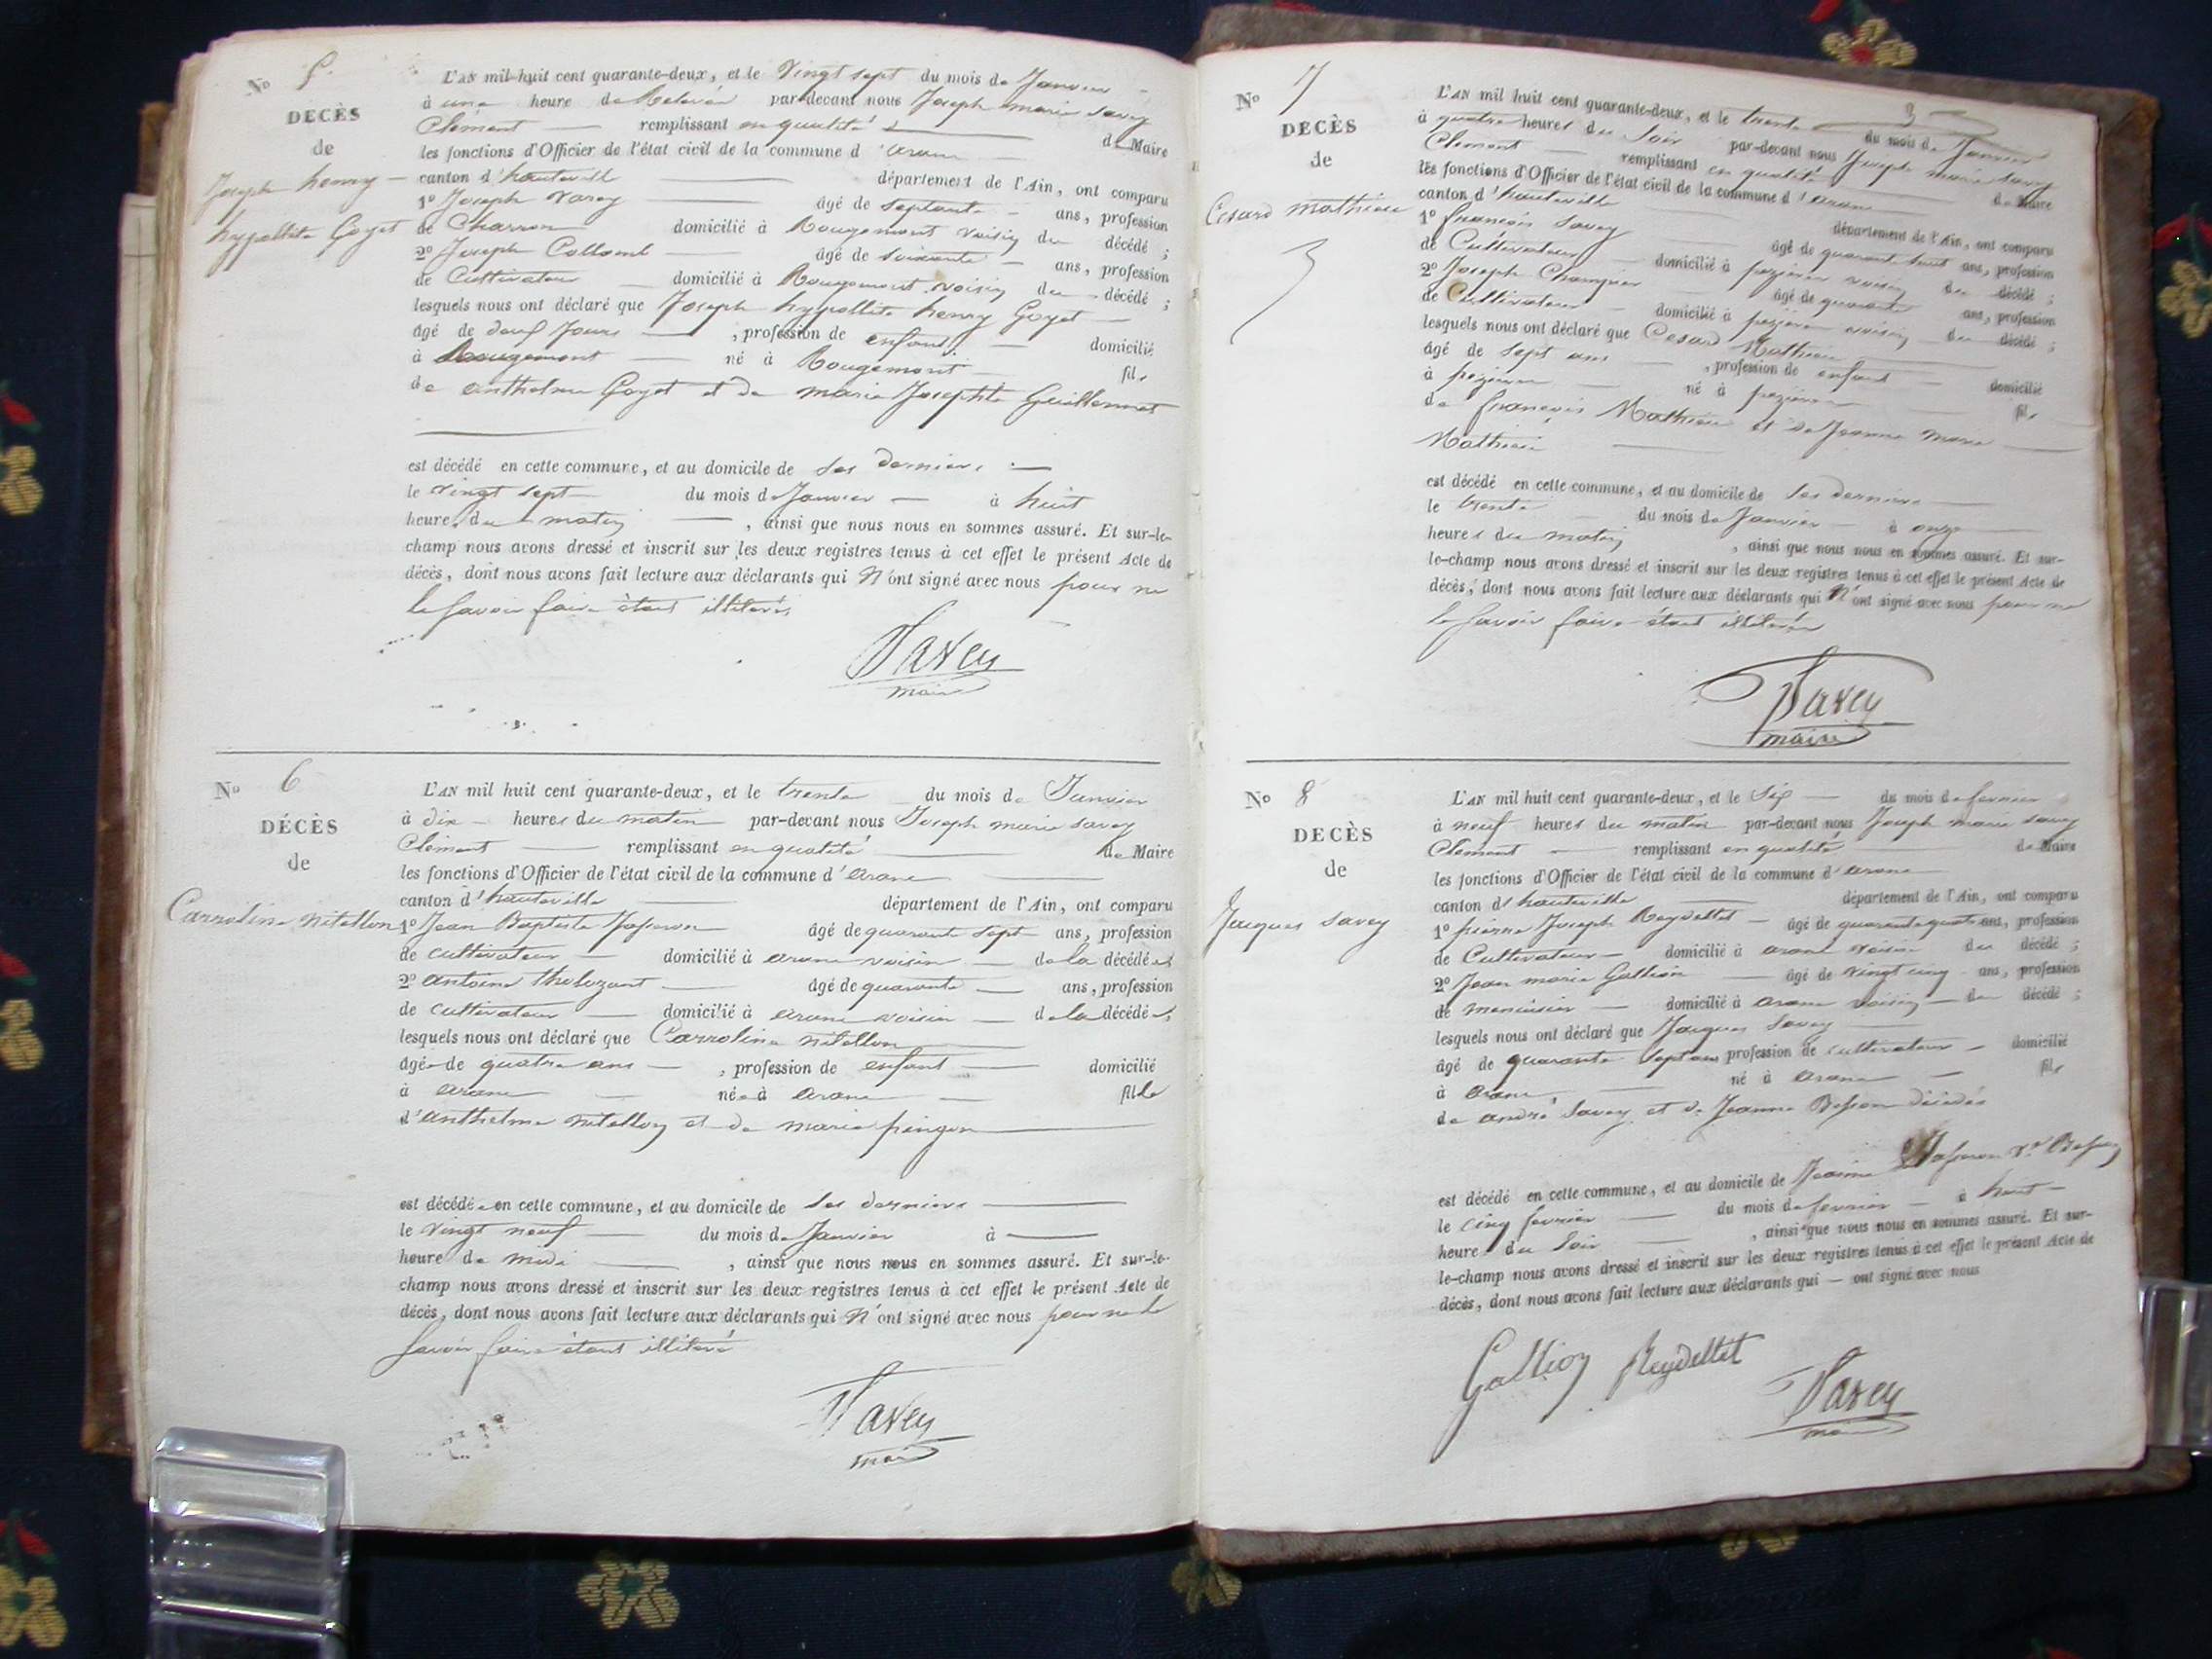 No 5.
DECÈS
de
Joseph henry
hypollite Goyet
L'AN mil huit cent quarante-deux, et le Vingt sept du mois de Janvier
à une heure de Relevée par-devant nous Joseph marie Savey
Clément remplissant en qualité de Maire
les fonctions d'Officier de l'état civil de la commune d'arane
canton d'hauteville département de l'Ain, ont comparu
1º Joseph Varey âgé de septante ans, profession
de Charron domicilié à Rougemont voisin du décédé ;
2º Joseph Collomb âgé de soixante ans, profession
de Cultivateur domicilié à Rougemont voisin du décédé ;
lesquels nous ont déclaré que Joseph hypollite henry Goyet
âgé de deux Jours , profession de enfant domicilié
à Rougemont né à Rougemont fils
de anthelme Goyet et de marie Josephte Guillermet
est décédé en cette commune, et au domicile de Ses derniers
le vingt sept du mois de Janvier à huit
heures du matin , ainsi que nous nous en sommes assuré. Et sur-le-
champ nous avons dressé et inscrit sur les deux registres tenus à cet effet le présent Acte de
décès, dont nous avons fait lecture aux déclarants qui N'ont signé avec nous pour ne
le Savoir faire étant illiterés
Savey
maire
No 6
DÉCÈS
de
Carroline nitellon
L'AN mil huit cent quarante-deux, et le trente du mois de Janvier
à dix heures du matin par-devant nous Joseph marie Savey
Clément remplissant en qualité de Maire
les fonctions d'Officier de l'état civil de la commune d'arane
canton d'hauteville département de l'Ain, ont comparu
1º Jean Baptiste âgé de quarante sept ans, profession
de cultivateur domicilié à arane voisin de la décédée
2º antoine tholozant âgé de quarante ans, profession
de cultivateur domicilié à arane voisin de la décédée,
lesquels nous ont déclaré que Carroline nitellon
âgée de quatre ans , profession de enfant domicilié
à arane née à arane fille
d'anthelme nitellon et de marie pingon
est décédée en cette commune, et au domicile de Ses derniers
le vingt neuf du mois de Janvier à
heure de midi , ainsi que nous nous en sommes assuré. Et sur-le-
champ nous avons dressé et inscrit sur les deux registres tenus à cet effet le présent Acte de
décès, dont nous avons fait lecture aux déclarants qui N'ont signé avec nous pour ne le
Savoir faire étant illiteré
Savey
maire
3
No 7
DECÈS
de
Cesard mathieu
L'AN mil huit cent quarante-deux, et le trente du mois de Janvier
à quatre heures du Soir par-devant nous Joseph marie Savey
Clément remplissant en qualité de Maire
les fonctions d'Officier de l'état civil de la commune d'arane
canton d'hauteville département de l'Ain, ont comparu
1º françois Savey âgé de quarante huit ans, profession
de Cultivateur domicilié à pezieres voisin du décédé ;
2º Joseph âgé de quarante ans, profession
de Cultivateur domicilié à pezieres voisin du décédé ;
lesquels nous ont déclaré que Cesard Mathieu
âgé de Sept ans , profession de enfant domicilié
à pezieres né à pezieres fils
de françois Mathieu et de Jeanne Marie
Mathieu
est décédé en cette commune, et au domicile de Ses derniers
le trente du mois de Janvier à onze
heures du matin , ainsi que nous nous en sommes assuré. Et sur-
le-champ nous avons dressé et inscrit sur les deux registres tenus à cet effet le présent Acte de
décès, dont nous avons fait lecture aux déclarants qui N'ont signé avec nous pour ne
le Savoir faire étant illiterés
Savey
maire
No 8
DECÈS
de
Jacques Savey
L'AN mil huit cent quarante-deux, et le Six du mois de fevrier
à neuf heures du matin par-devant nous Joseph marie Savey
Clément remplissant en qualité de Maire
les fonctions d'Officier de l'état civil de la commune d'arane
canton d'hauteville département de l'Ain, ont comparu
1º pierre Joseph Reydellet âgé de quarante quatre ans, profession
de Cultivateur domicilié à arane voisin du décédé ;
2º Jean marie Gallion âgé de vingt cinq ans, profession
de menuisier domicilié à arane voisin du décédé ;
lesquels nous ont déclaré que Jacques Savey
âgé de quarante Sept ans profession de cultivateur domicilié
à arane né à arane fils
de andré Savey et de Jeanne Besson décédés
est décédé en cette commune, et au domicile de Jeanine
le cinq fevrier du mois de fevrier à huit
heures du Soir , ainsi que nous nous en sommes assuré. Et sur-
le-champ nous avons dressé et inscrit sur les deux registres tenus à cet effet le présent Acte de
décès, dont nous avons fait lecture aux déclarants qui — ont signé avec nous
Gallion Reydellet
Savey
maire